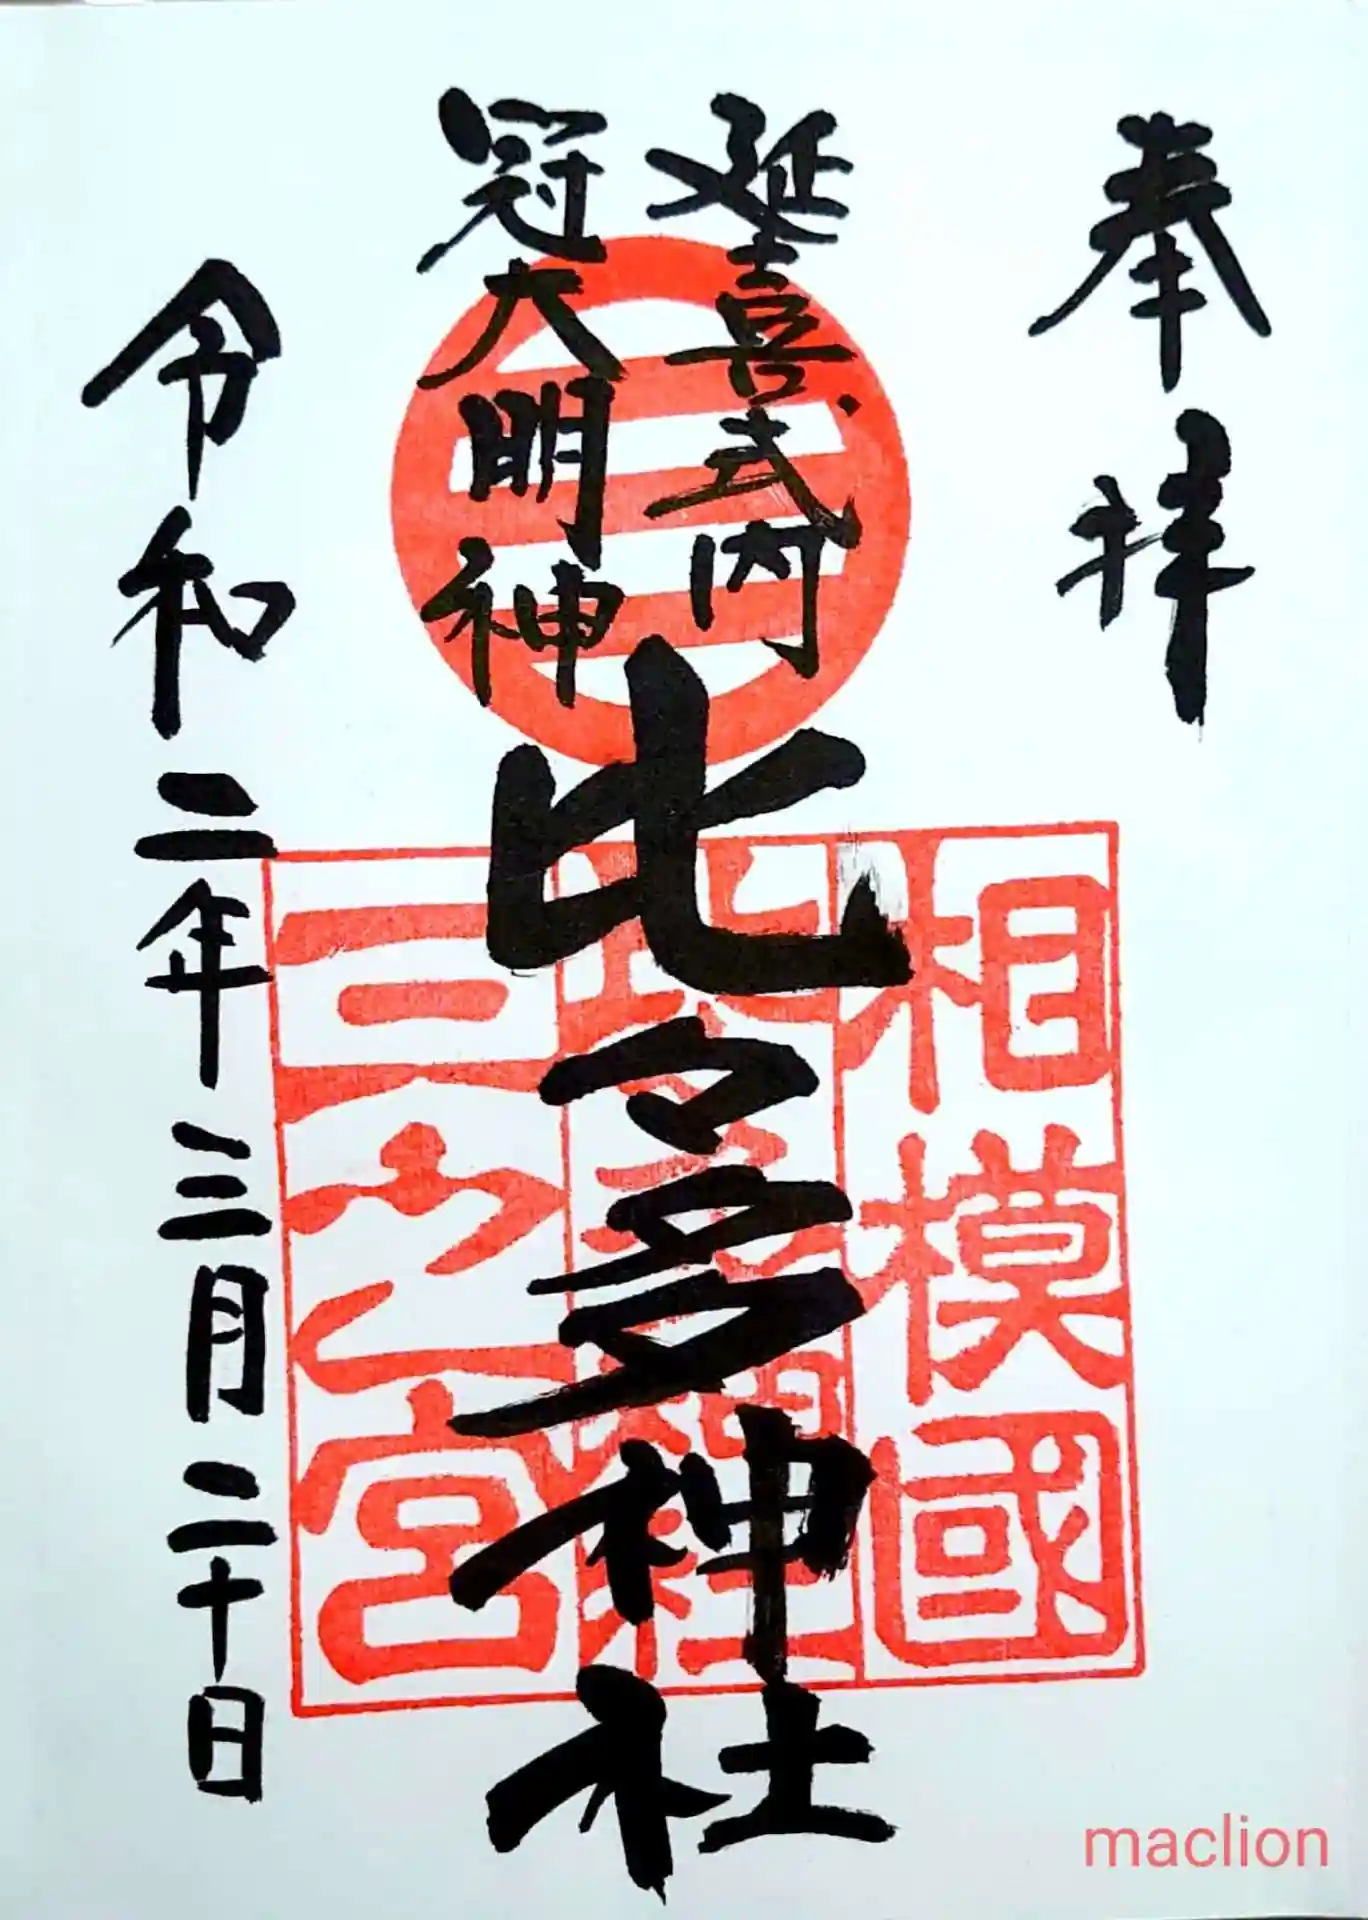 奉拝
延喜式内
冠大明神
比々多神社
令和二年三月二十日
相模國
比々多神社
三之宮
maclion